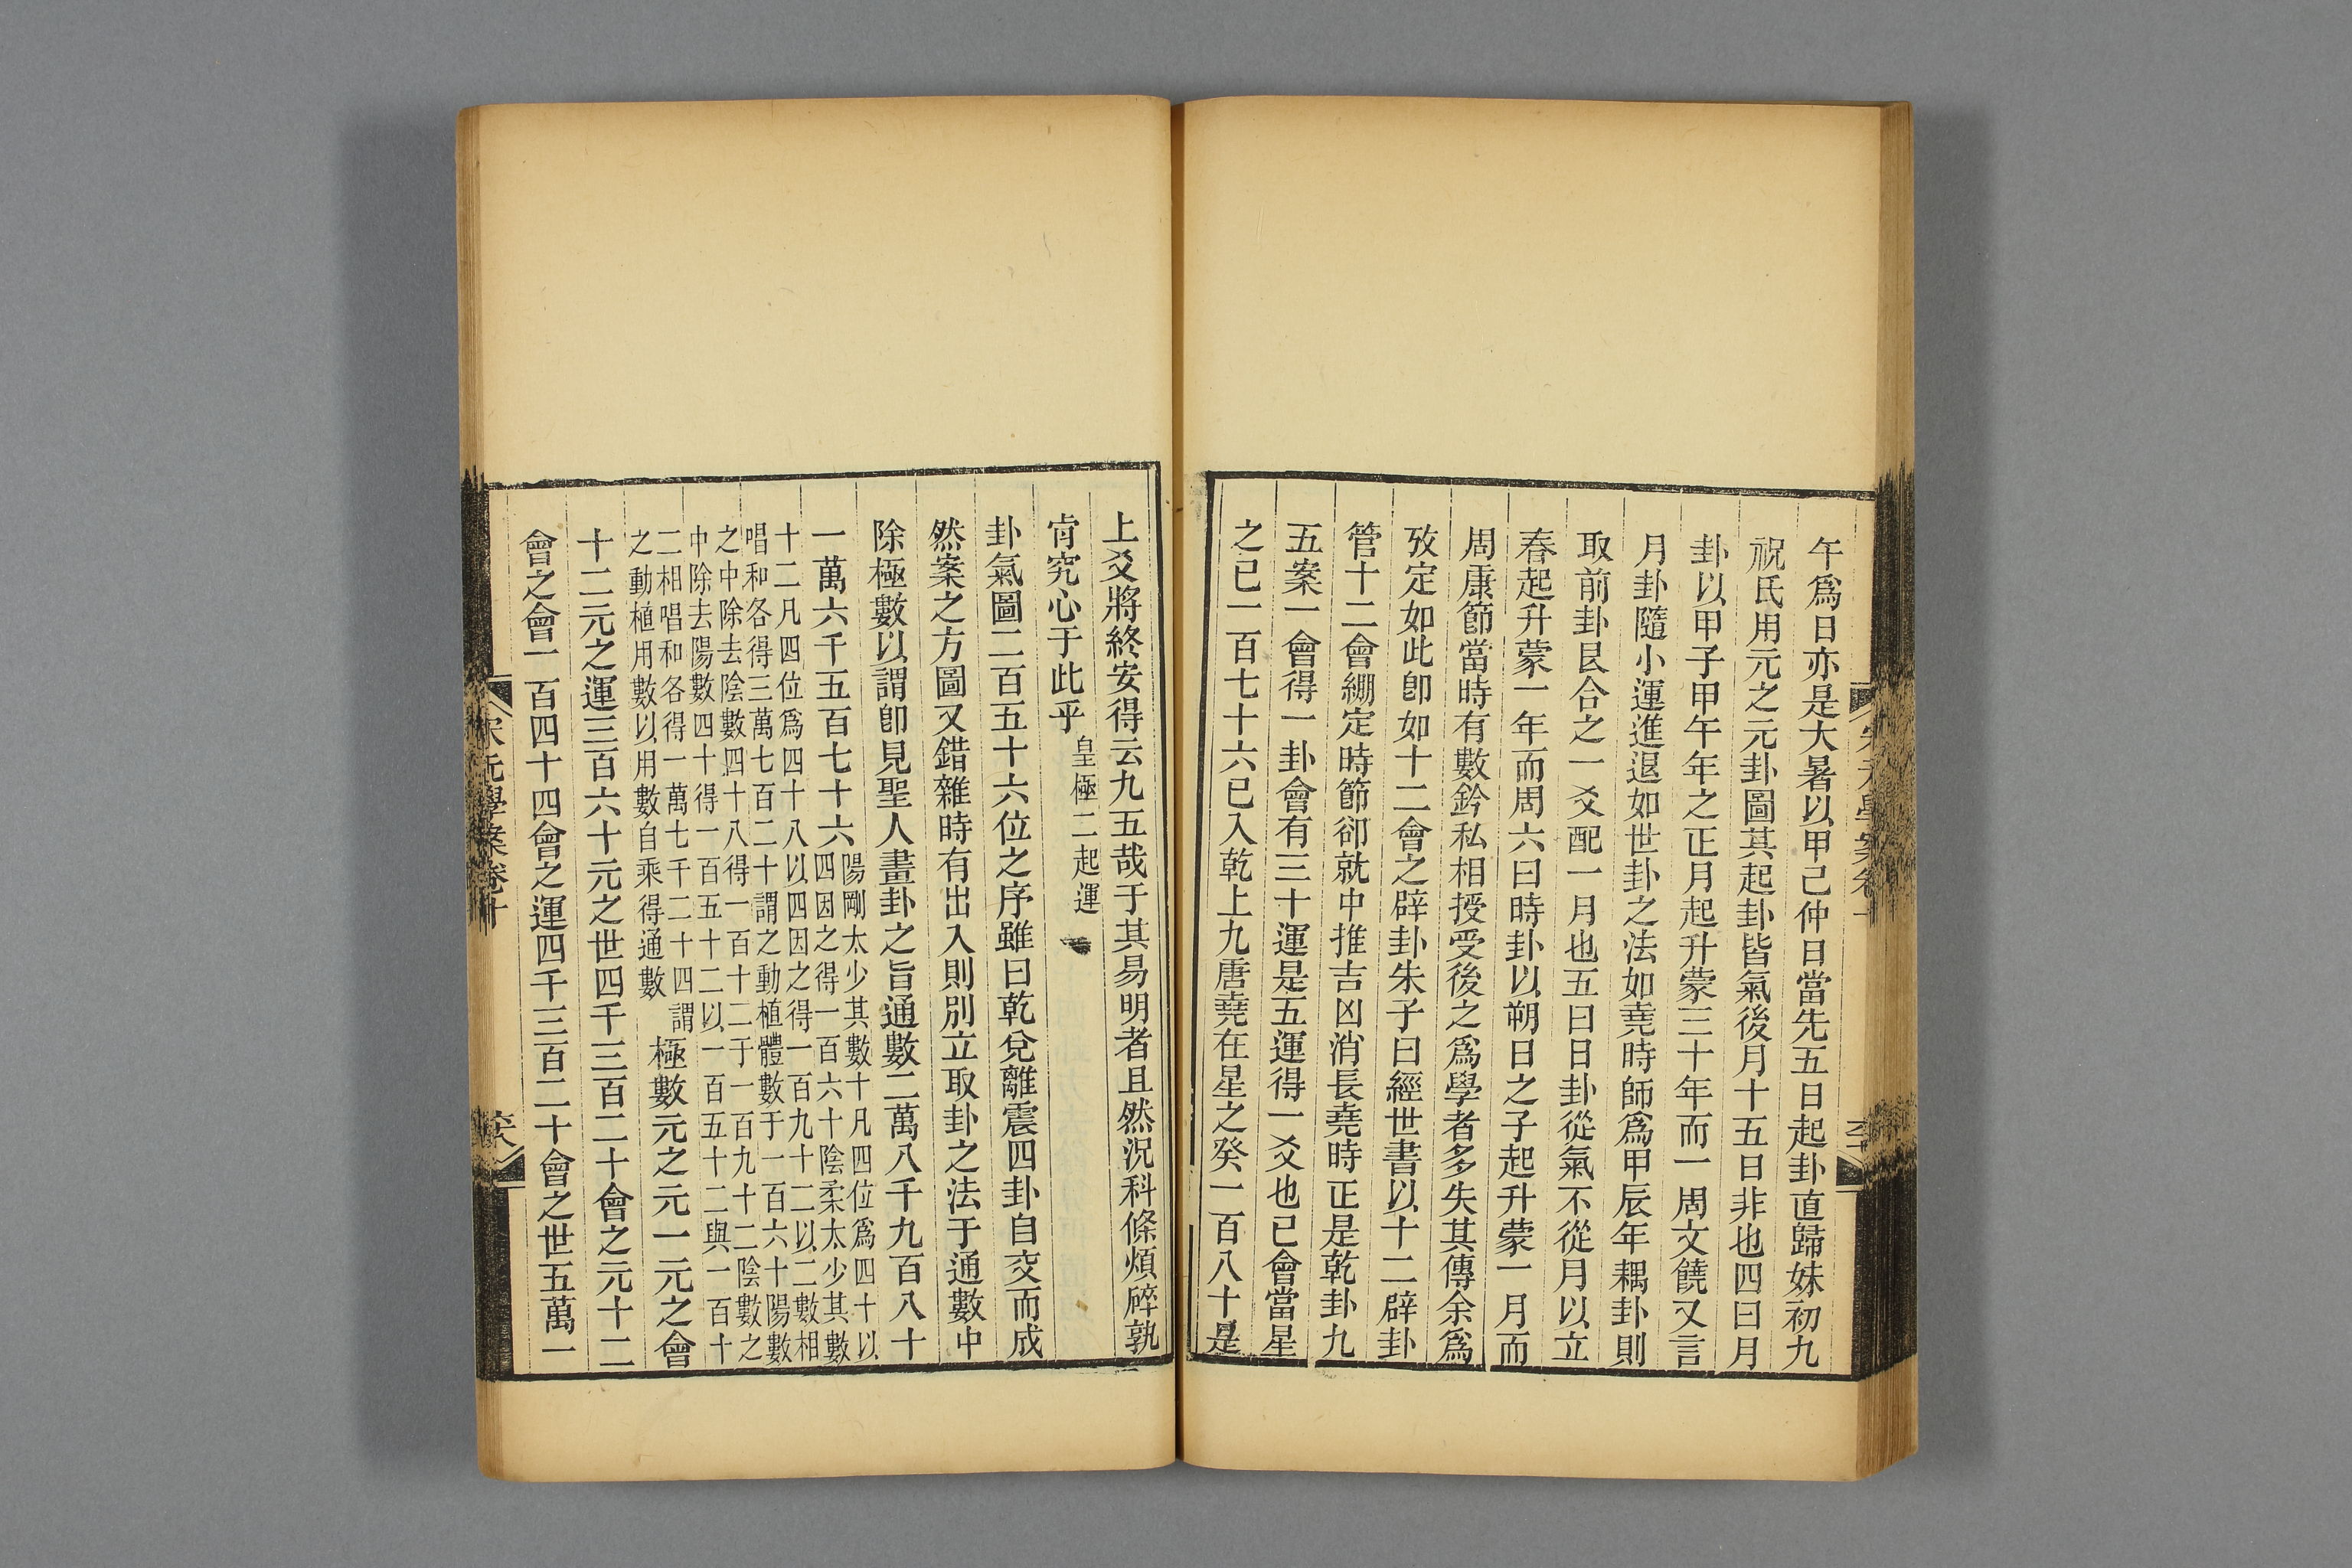 午爲日亦是大暑以甲己仲日當先五日起卦直歸妹初九
祝氏用元之元卦圖其起卦皆氣後月十五日非也四曰月
卦以甲子甲午年之正月起升蒙三十年而一周文饒又言
月卦隨小運進退如世卦之法如堯時師爲甲辰年耦卦則
取前卦艮合之一爻配一月也五曰日卦從氣不從月以立
春起升蒙一年而周六曰時卦以朔日之子起升蒙一月而
周康節當時有數鈐私相授受後之爲學者多失其傳余爲
攷定如此卽如十二會之辟卦朱子曰經世書以十二辟卦
管十二會綳定時節卻就中推吉凶消長堯時正是乾卦九
五案一會得一卦會有三十運是五運得一爻也已會當星
之已一百七十六已入乾上九唐堯在星之癸一百八十是
上爻將終安得云九五哉于其易明者且然況科條煩碎孰
肯究心于此乎 皇極二起運
卦氣圖二百五十六位之序雖曰乾兌離震四卦自交而成
然案之方圖又錯雜時有出入則別立取卦之法于通數中
除極數以謂卽見聖人畫卦之旨通數二萬八千九百八十
一萬六千五百七十六 陽剛太少其數十凡四位爲四十以
四因之得一百六十陰柔太少其數
十二凡四位爲四十八以四因之得一百九十二以二數相
唱和各得三萬七百二十謂之動植體數于一百六十陽數
之中除去陰數四十八得一百十二于一百九十二陰數之
中除去陽數四十得一百五十二以一百五十二與一百十
二相唱和各得一萬七千二十四謂
之動植用數以用數自乘得通數 極數元之元一元之會
十二元之運三百六十元之世四千三百二十會之元十二
會之會一百四十四會之運四千三百二十會之世五萬一
宋元學案卷十